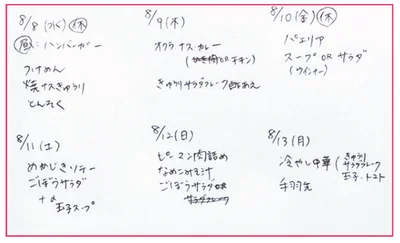 8/8 (水) 休
昼:ハンバーガー
つけめん
焼ナスきゅうり
とんそく
8/9 (木)
オクラナスカレー
(ひき肉ORチキン)
きゅうりサラダフレーク
8/10 (金) 休
パエリア
スープORサラダ
(ウインナー)
8/11 (土)
めかじきソテー
ごぼうサラダ
玉子スープ
8/12 (日)
ピーマン肉詰め
なめこみそ汁
ごぼうサラダOR
サラダフレーク
8/13 (月)
冷やし中華 (きゅうり
サラダフレーク
玉子、トマト
手羽先